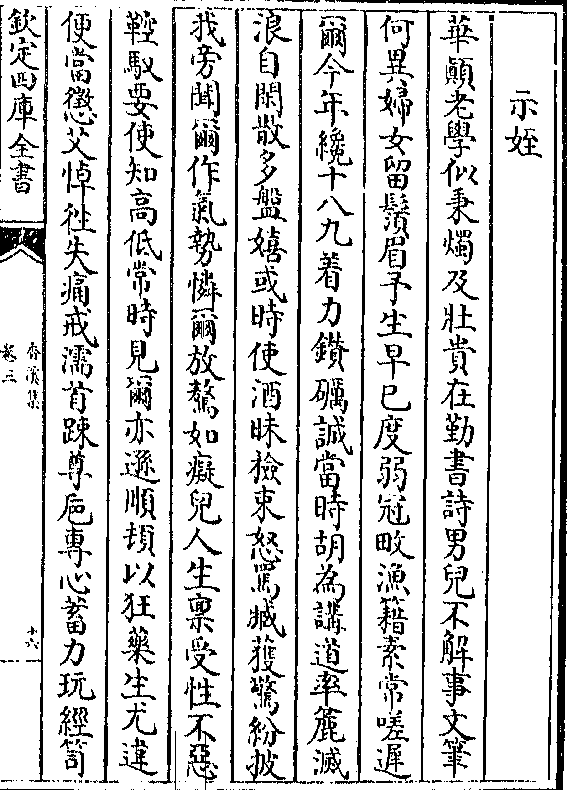 示姪
華顛老學似秉燭及壯貴在勤書詩男兒不解事文筆
何異婦女留鬚眉予生早已度弱冠畋漁籍素常嗟遲
爾今年纔十八九着力鑚礪誠當時胡為講道率麄滅
浪自閑散多盤嬉或時使酒昧檢束怒罵臧獲驚紛披
我旁聞爾作氣勢憐爾放驁如癡兒人生禀受性不惡
鞚馭要使知高低常時見爾亦遜順頼以狂藥生尤違
便當懲艾悼往失痛戒濡首踈尊巵專心蓄力玩經笥
欽定四庫全書
香溪集
卷三
十六